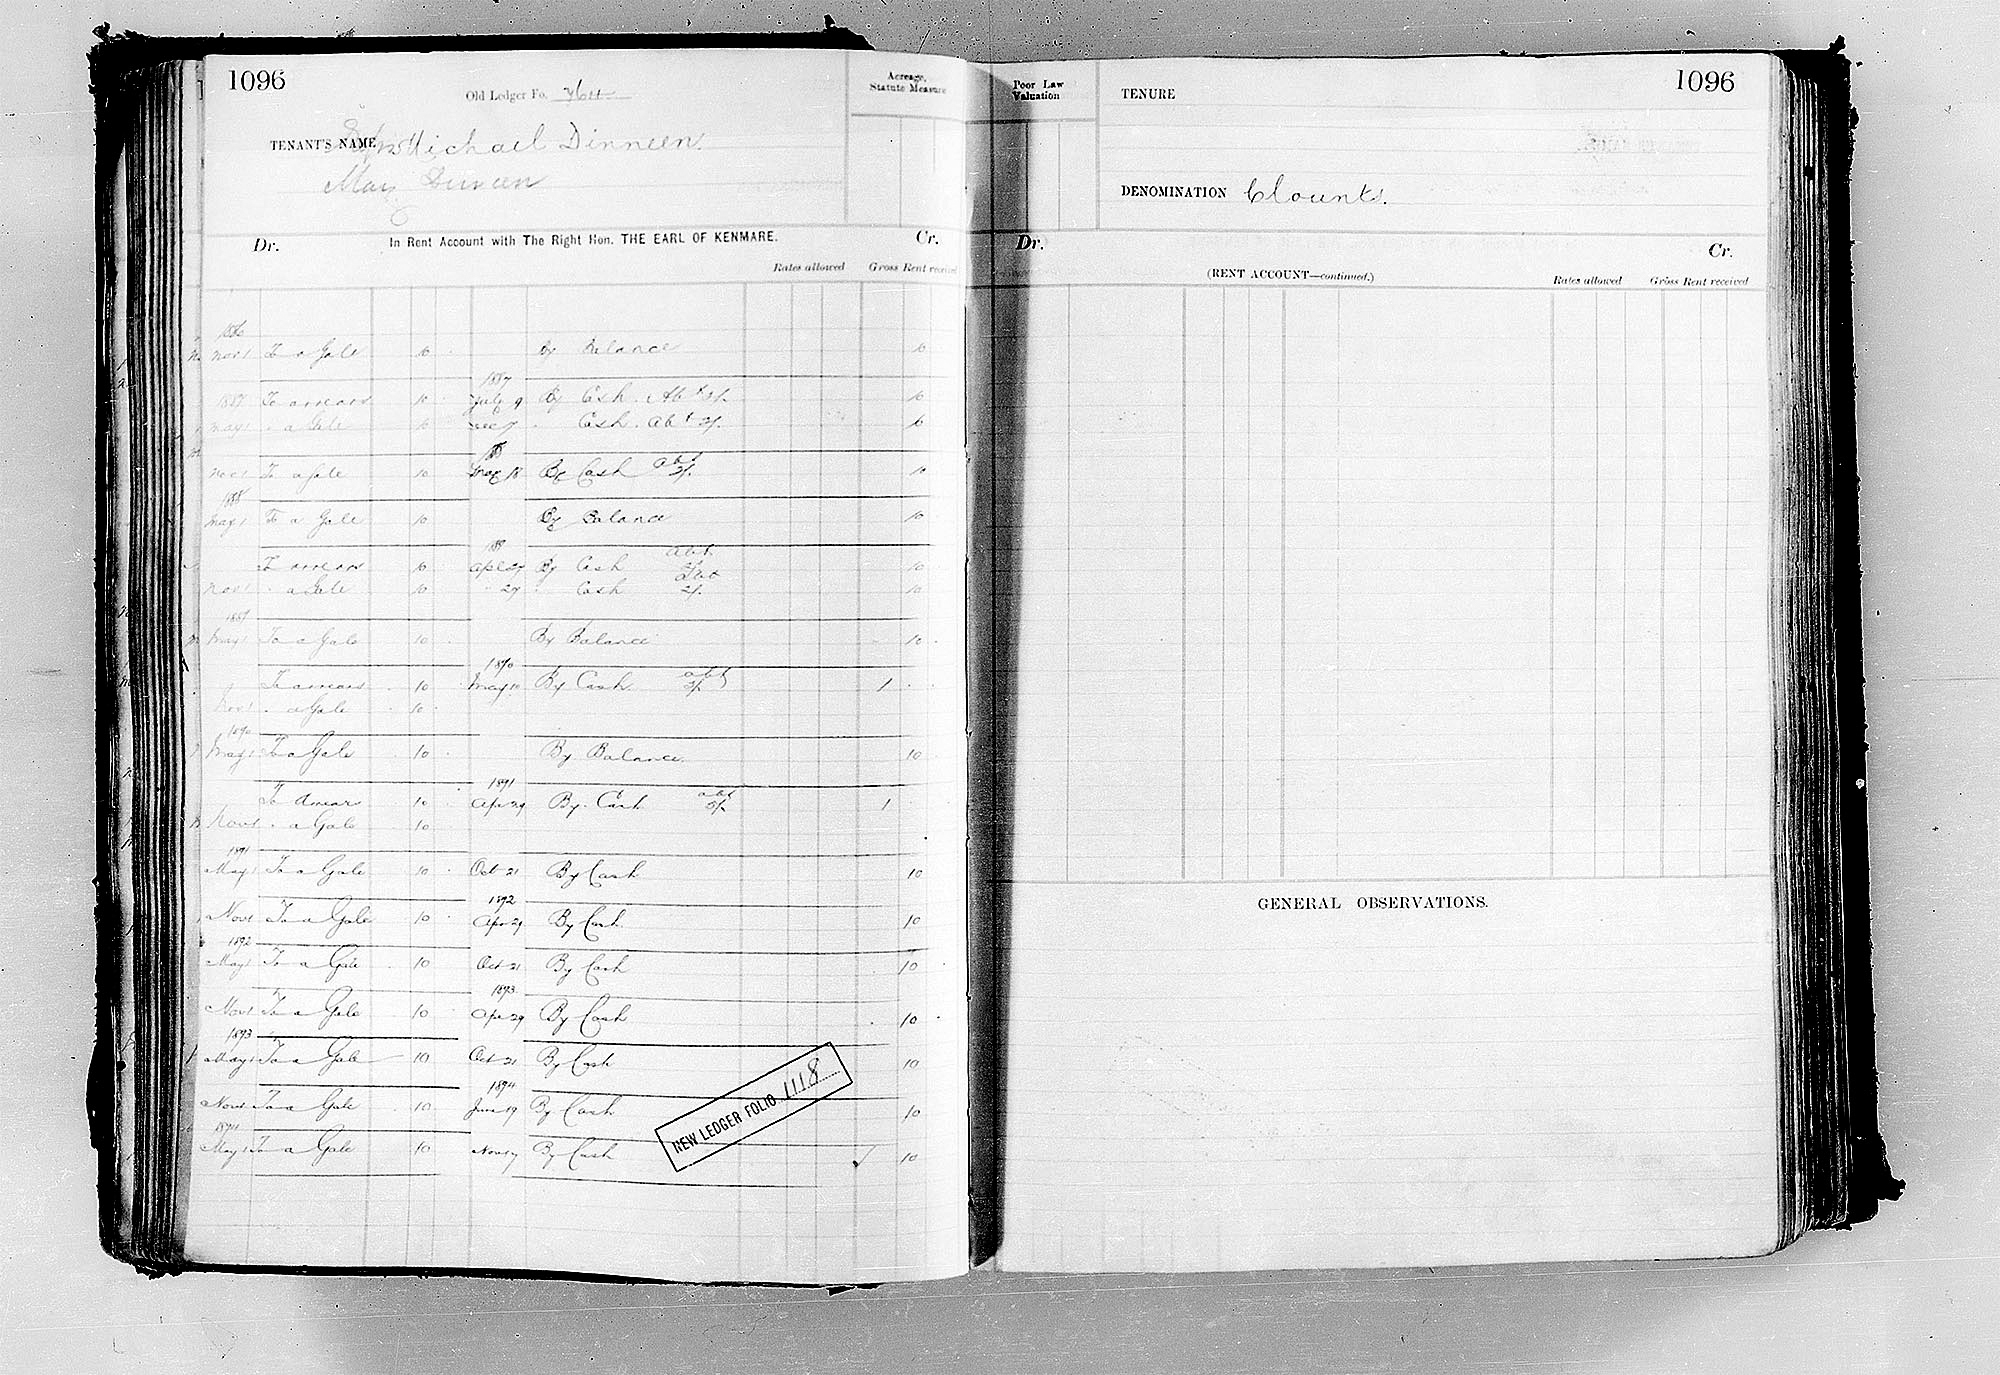 1096
Old Ledger Fo.
Acreage, Statute Measure
TENANT'S NAME Michael Dinneen
May Dinneen
Dr. In Rent Account with The Right Hon. THE EARL OF KENMARE. Cr.
Rates allowed Gross Rent received
1886
Nov 1 To a Gale 10 By Balance 10
1887
1887 To arrears 10 July 9 By Cash Abt 2/. 10
May 1 " a Gale 10 Cash. abt 2/. 10
Nov 1 To a Gale 10 May 18 By Cash abt 2/. 10
1888
May 1 To a Gale 10 By Balance 10
To arrears 10 Apl 27 By Cash abt 10
Nov 1 " a Gale 10 " 27 " Cash 2/. 10
1889
May 1 To a Gale 10 By Balance 10
1890
To arrears 10 May 10 By Cash abt 1
Nov 1 " a Gale 10
1890
May 1 To a Gale 10 By Balance 10
1891
To Arrears 10 Apr 29 By Cash abt 1
Nov 1 " a Gale 10
1891
May 1 To a Gale 10 Oct 21 By Cash 10
1892
Nov 1 To a Gale 10 Apr 29 By Cash 10
1892
May 1 To a Gale 10 Oct 21 By Cash 10
1893
Nov 1 To a Gale 10 Apr 29 By Cash 10
1893
May 1 To a Gale 10 Oct 21 By Cash 10
1894
Nov 1 To a Gale 10 June 19 By Cash 10
1894
May 1 To a Gale 10 Nov 17 By Cash 10
NEW LEDGER FOLIO 1118
1096
Poor Law Valuation
TENURE
DENOMINATION Clounts.
Dr. Cr.
(RENT ACCOUNT—continued.) Rates allowed Gross Rent received
GENERAL OBSERVATIONS.